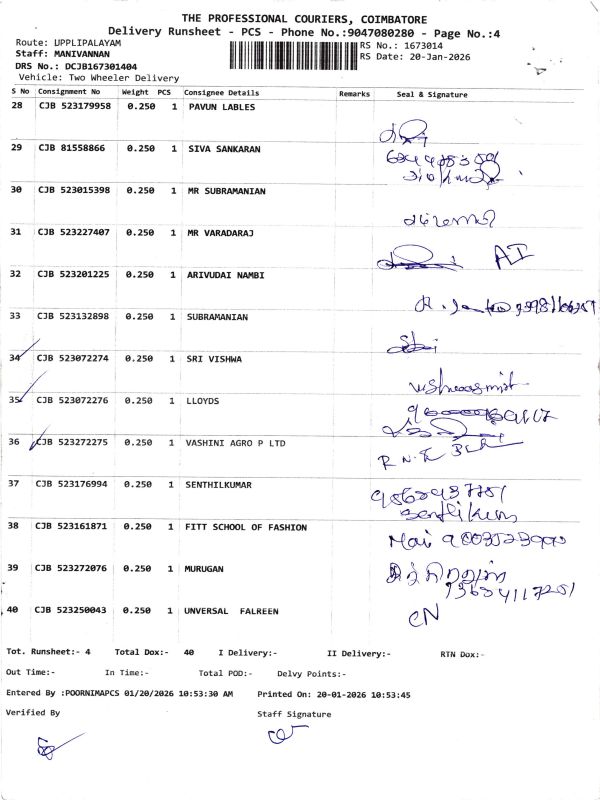 THE PROFESSIONAL COURIERS, COIMBATORE
Delivery Runsheet - PCS - Phone No.:9047080280 - Page No.:4
Route: UPPLIPALAYAM
RS No.: 1673014
Staff: MANIVANNAN
RS Date: 20-Jan-2026
DRS No.: DCJB167301404
Vehicle: Two Wheeler Delivery
S No Consignment No Weight PCS Consignee Details Remarks Seal & Signature
28 CJB 523179958 0.250 1 PAVUN LABLES
29 CJB 81558866 0.250 1 SIVA SANKARAN
30 CJB 523015398 0.250 1 MR SUBRAMANIAN
31 CJB 523227407 0.250 1 MR VARADARAJ
AI
32 CJB 523201225 0.250 1 ARIVUDAI NAMBI
33 CJB 523132898 0.250 1 SUBRAMANIAN
34 CJB 523072274 0.250 1 SRI VISHWA
35 CJB 523072276 0.250 1 LLOYDS
36 CJB 523272275 0.250 1 VASHINI AGRO P LTD
37 CJB 523176994 0.250 1 SENTHILKUMAR
38 CJB 523161871 0.250 1 FITT SCHOOL OF FASHION
39 CJB 523272076 0.250 1 MURUGAN
40 CJB 523250043 0.250 1 UNVERSAL FALREEN
CN
Tot. Runsheet:- 4 Total Dox:- 40 I Delivery:- II Delivery:- RTN Dox:-
Out Time:- In Time:- Total POD:- Delvy Points:-
Entered By :POORNIMAPCS 01/20/2026 10:53:30 AM Printed On: 20-01-2026 10:53:45
Verified By Staff Signature